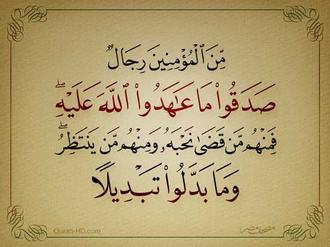 مِّنَ ٱلْمُؤْمِنِينَ رِجَالٌ
صَدَقُوا۟ مَا عَـٰهَدُوا۟ ٱللَّهَ عَلَيْهِ ۖ
فَمِنْهُم مَّن قَضَىٰ نَحْبَهُۥ وَمِنْهُم مَّن يَنتَظِرُ ۖ
وَمَا بَدَّلُوا۟ تَبْدِيلًا
Quran-HD.com